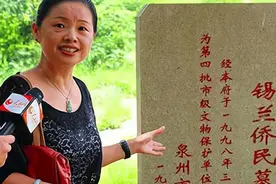 锡兰侨民墓
经本府于一九九八年三
为第四批市级文物保护单位
泉州市
一九